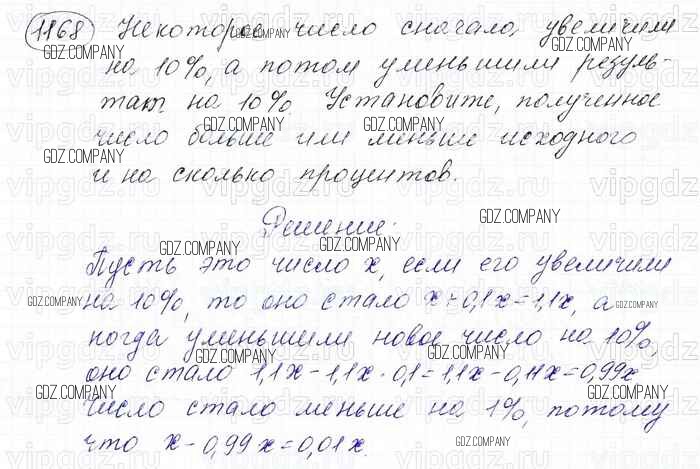 1168 Некоторое число сначала увеличили
на 10%, а потом уменьшили резуль-
тат на 10%. Установите, полученное
число больше или меньше исходного
и на сколько процентов.
Решение:
Пусть это число x, если его увеличили
на 10%, то оно стало x+0,1x=1,1x, а
когда уменьшили новое число на 10%,
оно стало 1,1x-1,1x·0,1=1,1x-0,11x=0,99x
Число стало меньше на 1%, потому
что x-0,99x=0,01x.